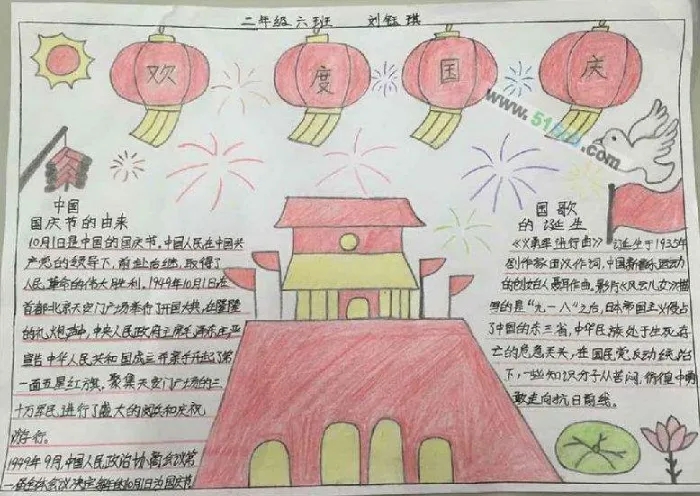 二年级六班 刘钰琪
欢度国庆
www.51
.com
中国
国庆节的由来
10月1日是中国的国庆节,中国人民在中国共
产党的领导下,前赴后继,取得了
人民革命的伟大胜利,1949年10月1日在
首都北京天安门广场举行了开国大典,在隆隆
的礼炮声中,中央人民政府主席毛泽东庄严
宣告中华人民共和国成立并亲手升起了第
一面五星红旗,聚集天安门广场的三
十万军民进行了盛大的阅兵和庆祝
游行.
1949年9月,中国人民政治协商会议第
一届全体会议决定每年的10月1日为国庆节
国歌
的诞生
《义勇军进行曲》诞生于1935年
剧作家田汉作词,中国新音乐运动
的创始人聂耳作曲,影片《风云儿女》描
写的是"九一八"之后,日本帝国主义侵占
了中国的东三省,中华民族处于生死存
亡的危急关头,在国民党反动统治
下,一些知识分子从苦闷,彷徨中勇
敢走向抗日前线.